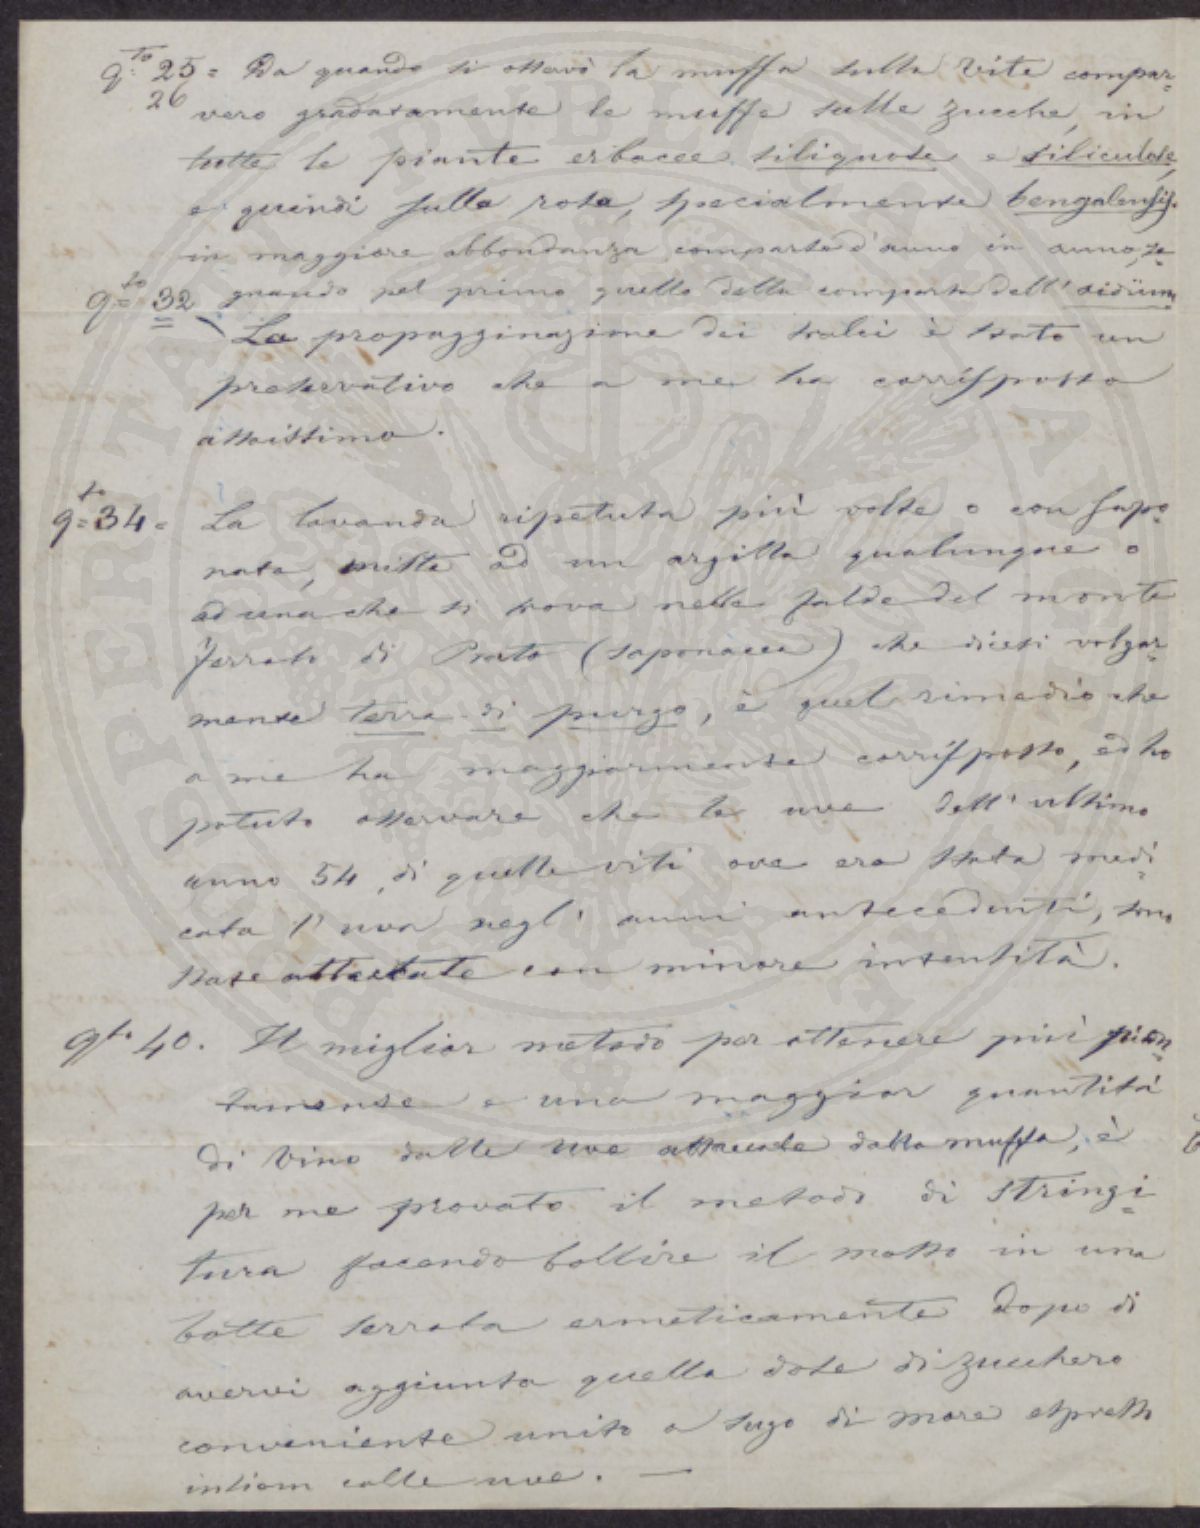 q.to 25 = Da quando si osservò la muffa sulla Vite compar=
26 vero gradatamente le muffe sulle zucche, in
tutte le piante erbacee siliquose e siliculose,
e quindi sulla rosa, specialmente bengalensis.
in maggiore abbondanza comparse d'anno in anno, se=
guendo pel primo quello della comparsa dell'oidium
q.to 32 La propagginazione dei tralci è stato un
preservativo che a me ha corrisposto
assaissimo.
q.to 34 = La lavanda ripetuta più volte o con sapo=
nata, mista ad un argilla qualunque o
ad una che si trova nelle falde del monte
ferrato di Prato (saponacea) che dicesi volgar=
mente terra di purgo, è quel rimedio che
a me ha maggiormente corrisposto, ed ho
potuto osservare che le uve dell'ultimo
anno 54, di quelle viti ove era stata medi=
cata l'uva negl'anni antecedenti, sono
state attaccate con minore intensità.
q.to 40. Il miglior metodo per ottenere più pron=
tamente e una maggior quantità
di Vino dalle uve attaccate dalla muffa, è
per me provato il metodo di stringi=
tura facendo bollire il mosto in una
botte serrata ermeticamente dopo di
avervi aggiunta quella dose di zucchero
conveniente unito a sugo di more espresso
insiem colle uve. —